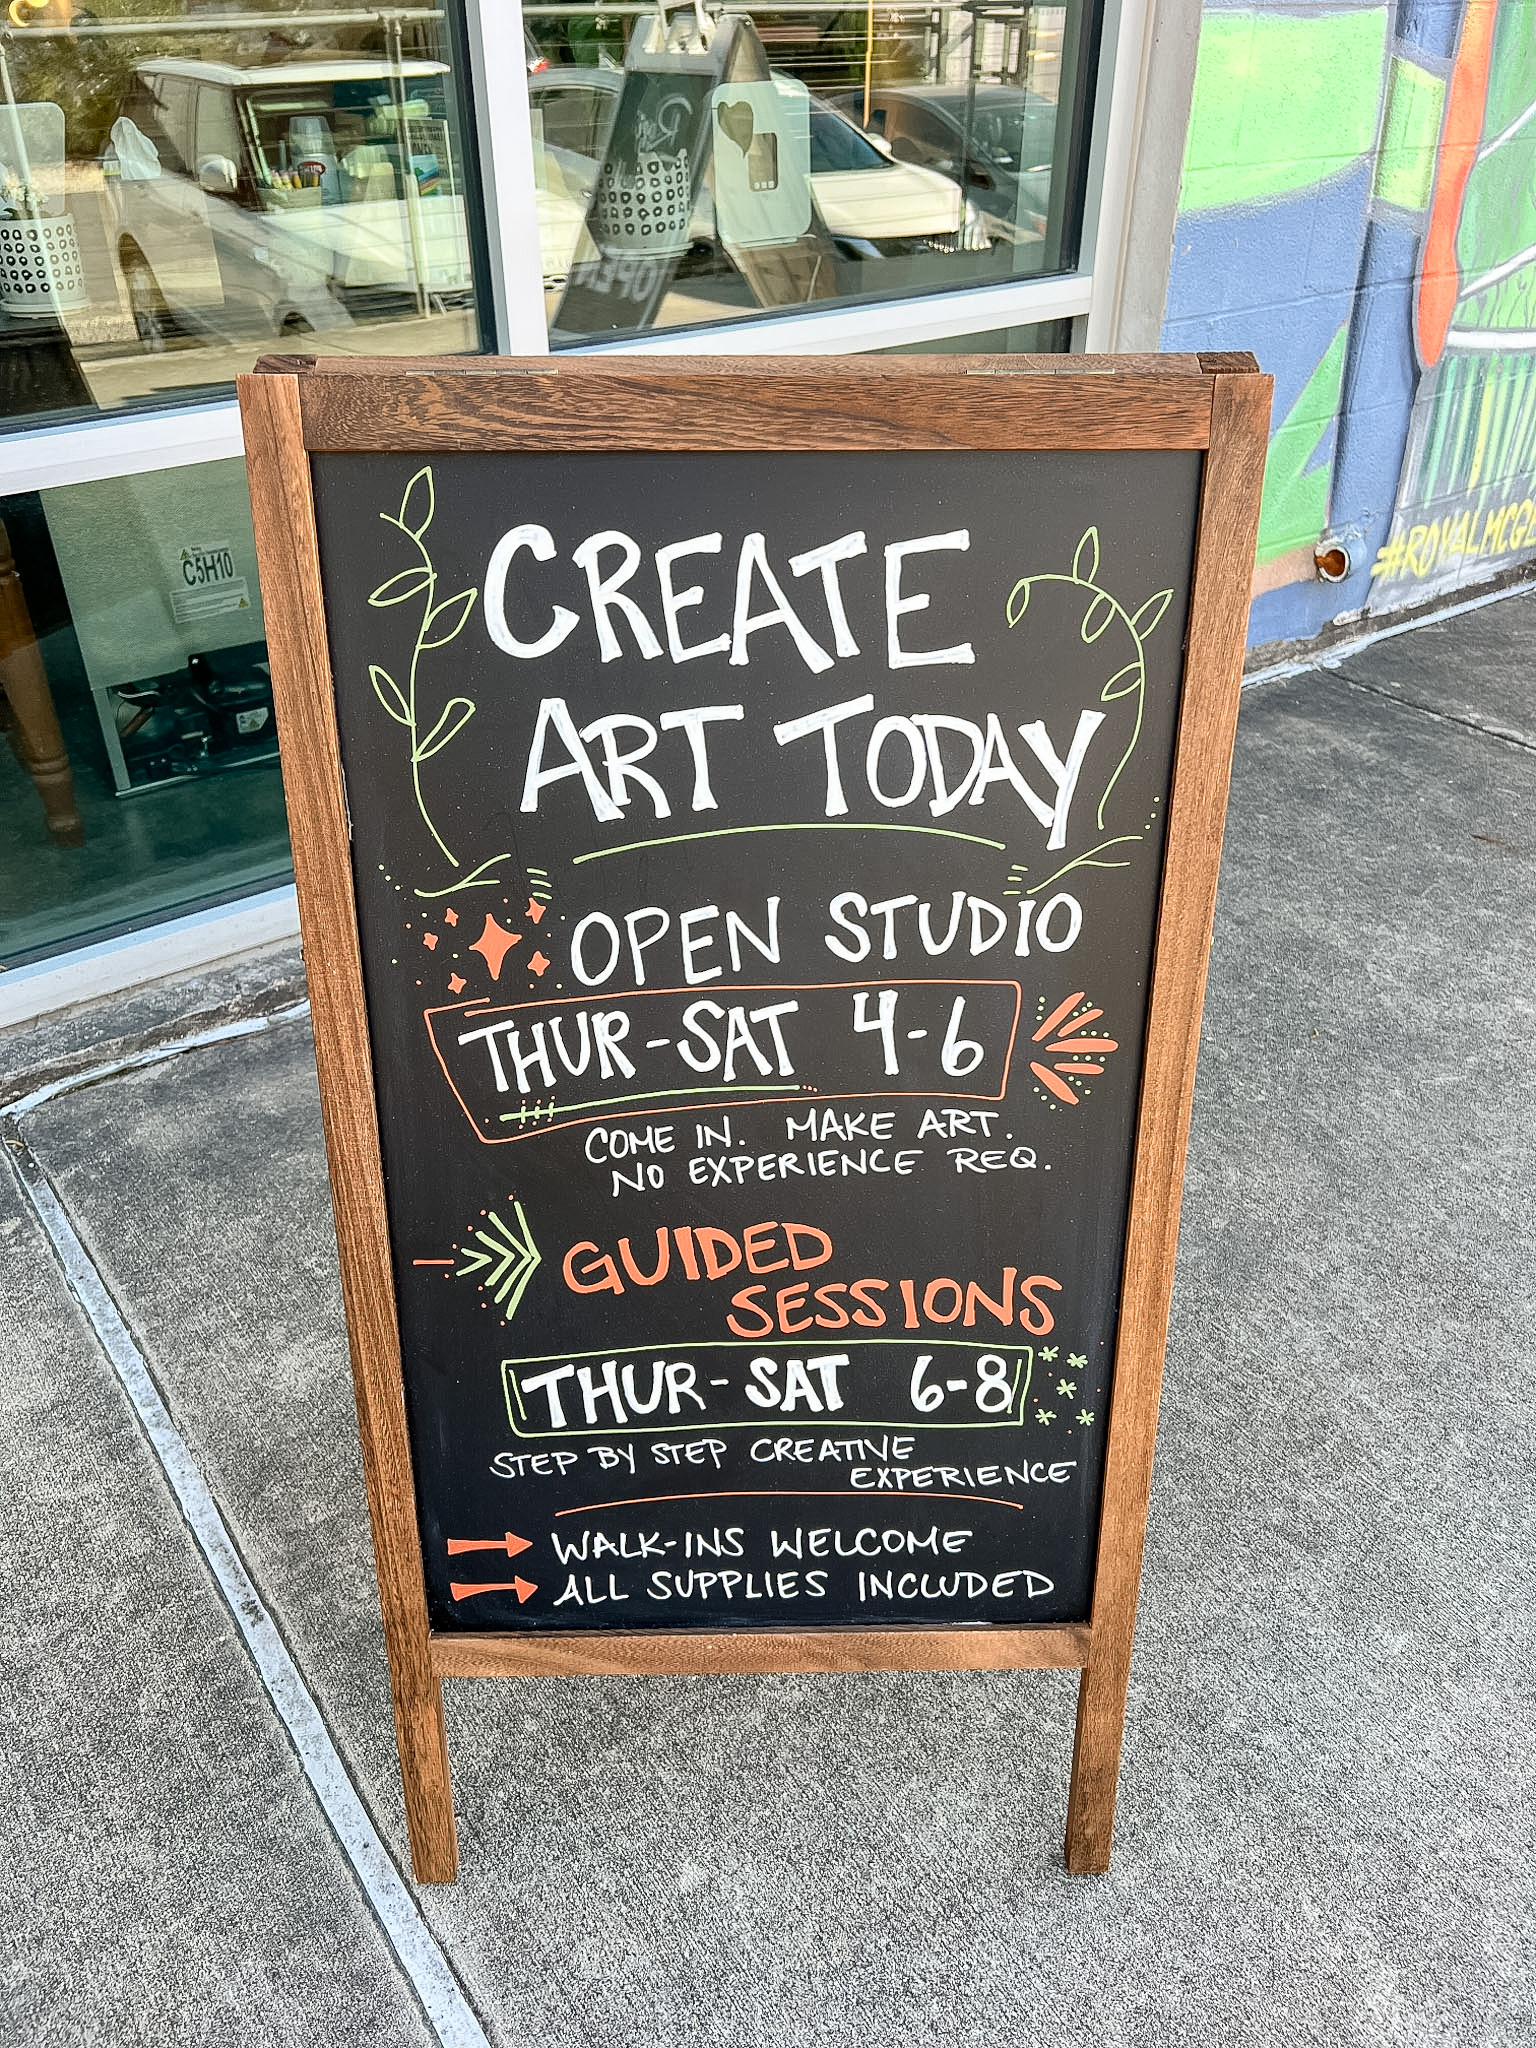 C5H10
#ROYALMCQ
CREATE
ART TODAY
OPEN STUDIO
THUR-SAT 4-6
COME IN. MAKE ART.
NO EXPERIENCE REQ.
GUIDED
SESSIONS
THUR-SAT 6-8
STEP BY STEP CREATIVE
EXPERIENCE
WALK-INS WELCOME
ALL SUPPLIES INCLUDED